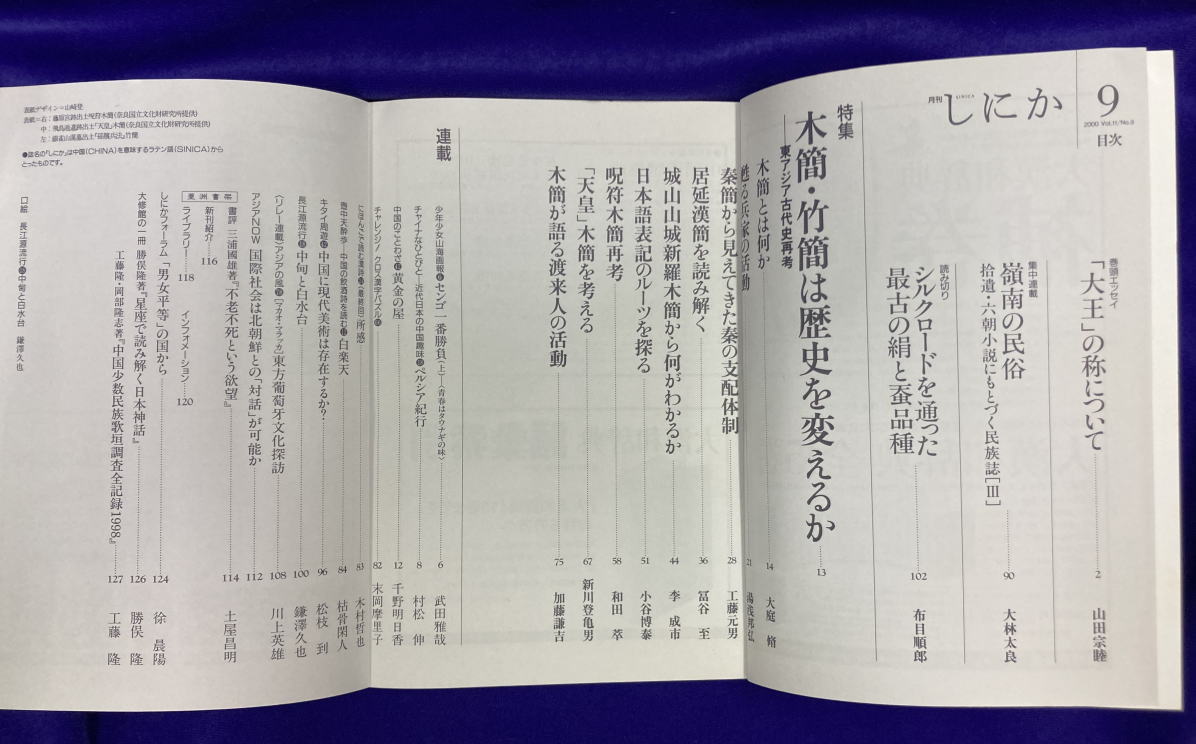 月刊 しにか SINICA
9
2000 Vol.11/No.9
目次
巻頭エッセイ
「大王」の称について 2 山田宗睦
集中連載
嶺南の民俗
拾遺・六朝小説にもとづく民族誌[Ⅲ] 90 大林太良
読み切り
シルクロードを通った
最古の絹と蚕品種 102 布目順郎
特集
木簡・竹簡は歴史を変えるか 13
東アジア古代史再考
木簡とは何か 14 大庭 脩
甦る兵家の活動 21 湯浅邦弘
秦簡から見えてきた秦の支配体制 28 工藤元男
居延漢簡を読み解く 36 冨谷 至
城山山城新羅木簡から何がわかるか 44 李 成市
日本語表記のルーツを探る 51 小谷博泰
呪符木簡再考 58 和田 萃
「天皇」木簡を考える 67 新川登亀男
木簡が語る渡来人の活動 75 加藤謙吉
連載
少年少女山海画報 センゴ一番勝負(上)―〈青春はタウナギの味〉 6 武田雅哉
チャイナなひとびと―近代日本の中国趣味 ペルシア紀行 8 村松 伸
中国のことわざ 黄金の屋 12 千野明日香
チャレンジ! クロス漢字パズル 82 末岡摩里子
にほんごで読む漢詩(最終回) 所感 83 木村哲也
壺中天酔歩―中国の飲酒詩を読む 白楽天 84 枯骨閑人
キタイ周遊 中国に現代美術は存在するか? 96 松枝 到
長江源流行 中甸と白水台 100 鎌澤久也
〈リレー連載〉アジアの風[マカオ・マラッカ] 東方葡萄牙文化探訪 108 川上英雄
アジアNOW 国際社会は北朝鮮との「対話」が可能か 112
書評 三浦國雄著『不老不死という欲望』 114 土屋昌明
東洲書架
新刊紹介 116
ライブラリー 118 インフォメーション 120
しにかフォーラム 「男女平等」の国から 124 徐 晨陽
大修館の一冊 勝俣隆著『星座で読み解く日本神話』 126 勝俣 隆
工藤隆・岡部隆志著『中国少数民族歌垣調査全記録1998』 127 工藤 隆
口絵 長江源流行 中甸と白水台 鎌澤久也
表紙デザイン=山崎登
表紙=右:藤原宮跡出土呪符木簡(奈良国立文化財研究所提供)
中:飛鳥池遺跡出土「天皇」木簡(奈良国立文化財研究所提供)
左:銀雀山漢墓出土「孫臏兵法」竹簡
●誌名の「しにか」は中国(CHINA)を意味するラテン語(SINICA)から
とったものです。